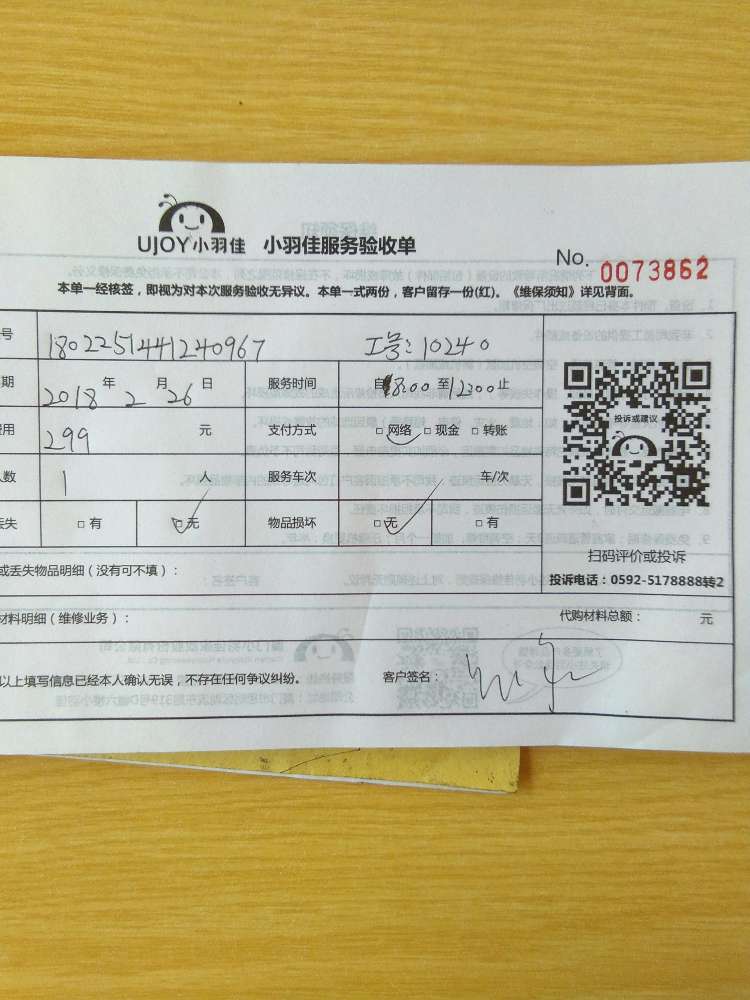 UJOY小羽佳 小羽佳服务验收单
No. 0073862
本单一经核签，即视为对本次服务验收无异议。本单一式两份，客户留存一份(红)。《维保须知》详见背面。
号 1802251441240967 工号：10240
期 2018 年 2 月 26 日 服务时间 自8:00 至12:00 止
费用 299 元 支付方式 □ 网络 □ 现金 □ 转账
人数 1 人 服务车次 车/次
丢失 □ 有 □ 无 物品损坏 □ 无 □ 有
投诉或建议
扫码评价或投诉
投诉电话：0592-5178888转2
或丢失物品明细（没有可不填）：
材料明细（维修业务）： 代购材料总额： 元
以上填写信息已经本人确认无误，不存在任何争议纠纷。 客户签名：